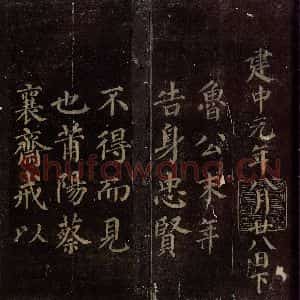 建中元年八月廿八日下
魯公末年
告身忠賢
不得而見
也莆陽蔡
襄齋戒以
shufawang.CN